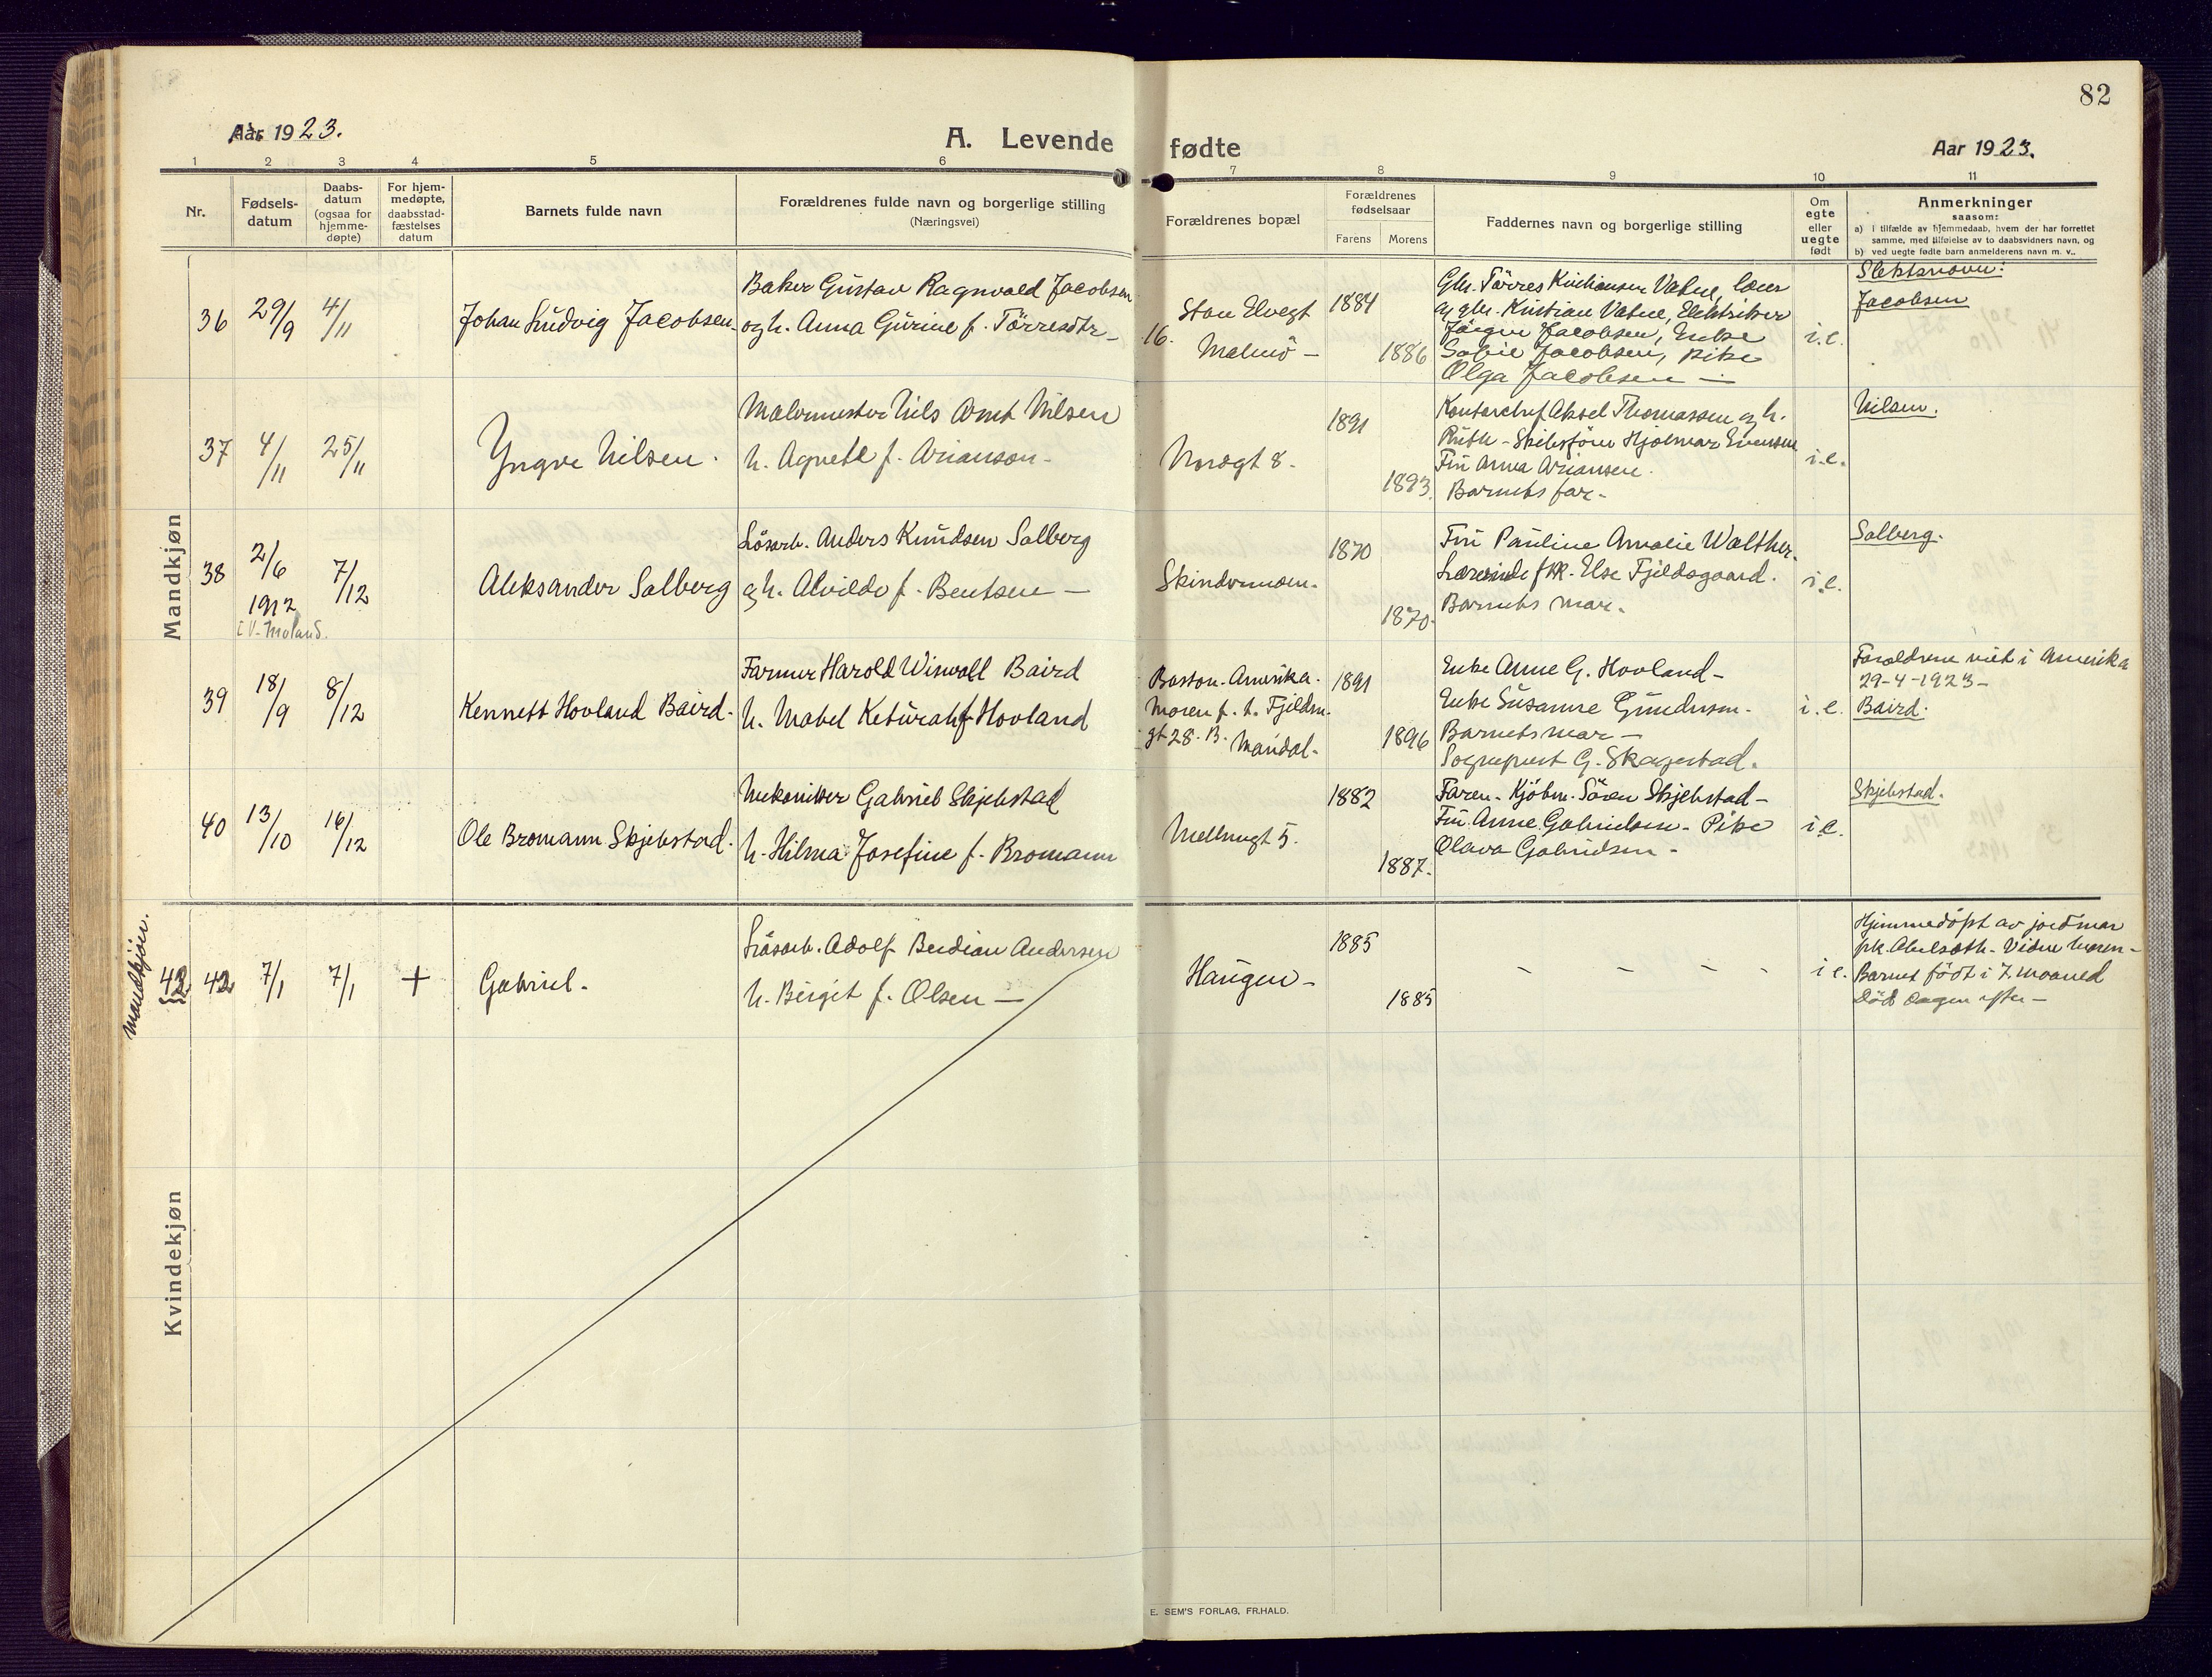 82
Aar 1923.
A. Levende fødte
Aar 1923.
1 2 3 4 5 6 7 8 9 10 11
Nr.
Fødsels-
datum
Daabs-
datum
(ogsaa for
hjemme-
døpte)
For hjem-
medøpte,
daabsstad-
fæstelses
datum
Barnets fulde navn
Forældrenes fulde navn og borgerlige stilling
(Næringsvei)
Forældrenes bopæl
Forældrenes
fødselsaar
Farens
Morens
Faddernes navn og borgerlige stilling
Om
egte
eller
uegte
født
Anmerkninger
saasom:
a) i tilfælde av hjemmedaab, hvem der har forrettet
samme, med tilføielse av to daabsvidners navn, og
b) ved uegte fødte barn anmelderens navn m. v..
Mandkjøn
36
29/9
4/11
Johan Ludvig Jacobsen
Baker Gustav Ragnvald Jacobsen
og h. Anna Gurine f. Törresdtr
Store Elvegt
16.
Malmö
1884
1886
Törres Vatne,
Kristian Vatne, Elektriker
Jörgen Jacobsen, Enke
Jacobsen, Pike
Olga Jacobsen
i.e.
Slektsnavn:
Jacobsen
37
4/11
25/11
Yngve Nilsen.
Malermester Nils Arnt Nilsen
h. Agnete f. Arianson
gt 8.
1891
1893.
Kontorchef Aksel Thomassen og h.
Ruth - Skibsförer Hjalmar Evensen
Fru Anna Ariansen.
Barnets far.
i.e.
Nilsen.
38
2/6
1912
i V. Moland.
7/12
Aleksander Salberg
Lösarb. Anders Knudsen Salberg
og h. Alvilde f. Bentsen
Skindermoen.
1870
1870.
Fru Pauline Amalie Walther.
Lærerinde frk. Else Fjeldsgaard.
Barnets mor.
i.e.
Salberg.
39
18/9
8/12
Kennett Hovland Baird.
Farmer Harold Winvoll Baird
h. Mabel Keturah f. Hovland
Boston. Amerika.
Moren f. t. Fjeldm.
gt 28. B. Mandal.
1891
1896
Enke Anne G. Hovland
Enke Susanne Gundersen.
Barnets mor
Sogneprest G. Skagestad.
i.e.
Forældrene viet i Amerika
29-4-1923
Baird.
40
13/10
16/12
Ole Bromann Skjebstad.
Mekaniker Gabriel Skjebstad
h. Hilma Josefine f. Bromann
Mellemgt 5.
1882
1887.
Faren. Kjöbm. Sören Skjebstad
Fru Anne Gabrielsen. Pike
Olava Gabrielsen
i.e.
Skjebstad.
Mandkjön.
42 42
7/1
7/1
+
Gabriel.
Lösarb. Adolf Berdian Andersen
h. Birgit f. Olsen
Haugen
1885
1885
i e.
Hjemmedöpt av jordmor
frk. Abelseth. Vidne moren
Barnet födt i 7. maaned
Död dagen efter
Kvindekjøn
E. SEM'S FORLAG, FR.HALD.